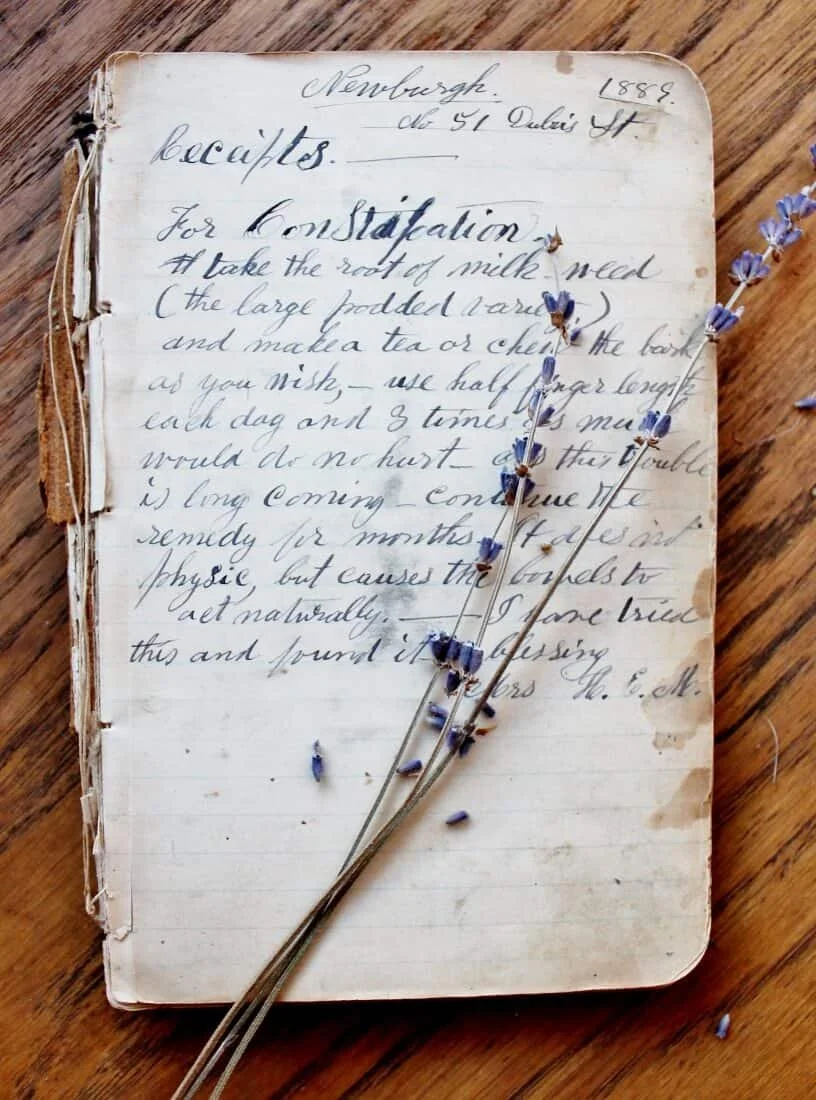 Newburgh. 1889.
No 51 Dubois St.
Receipts.
For Constipation.
take the root of milk weed
(the large podded variety)
and make a tea or chew the bark
as you wish, — use half finger length
each day and 3 times as much
would do no hurt — as this trouble
is long coming — continue the
remedy for months. It does not
physic, but causes the bowels to
act naturally. — I have tried
this and found it blessing
Mrs H. E. M.